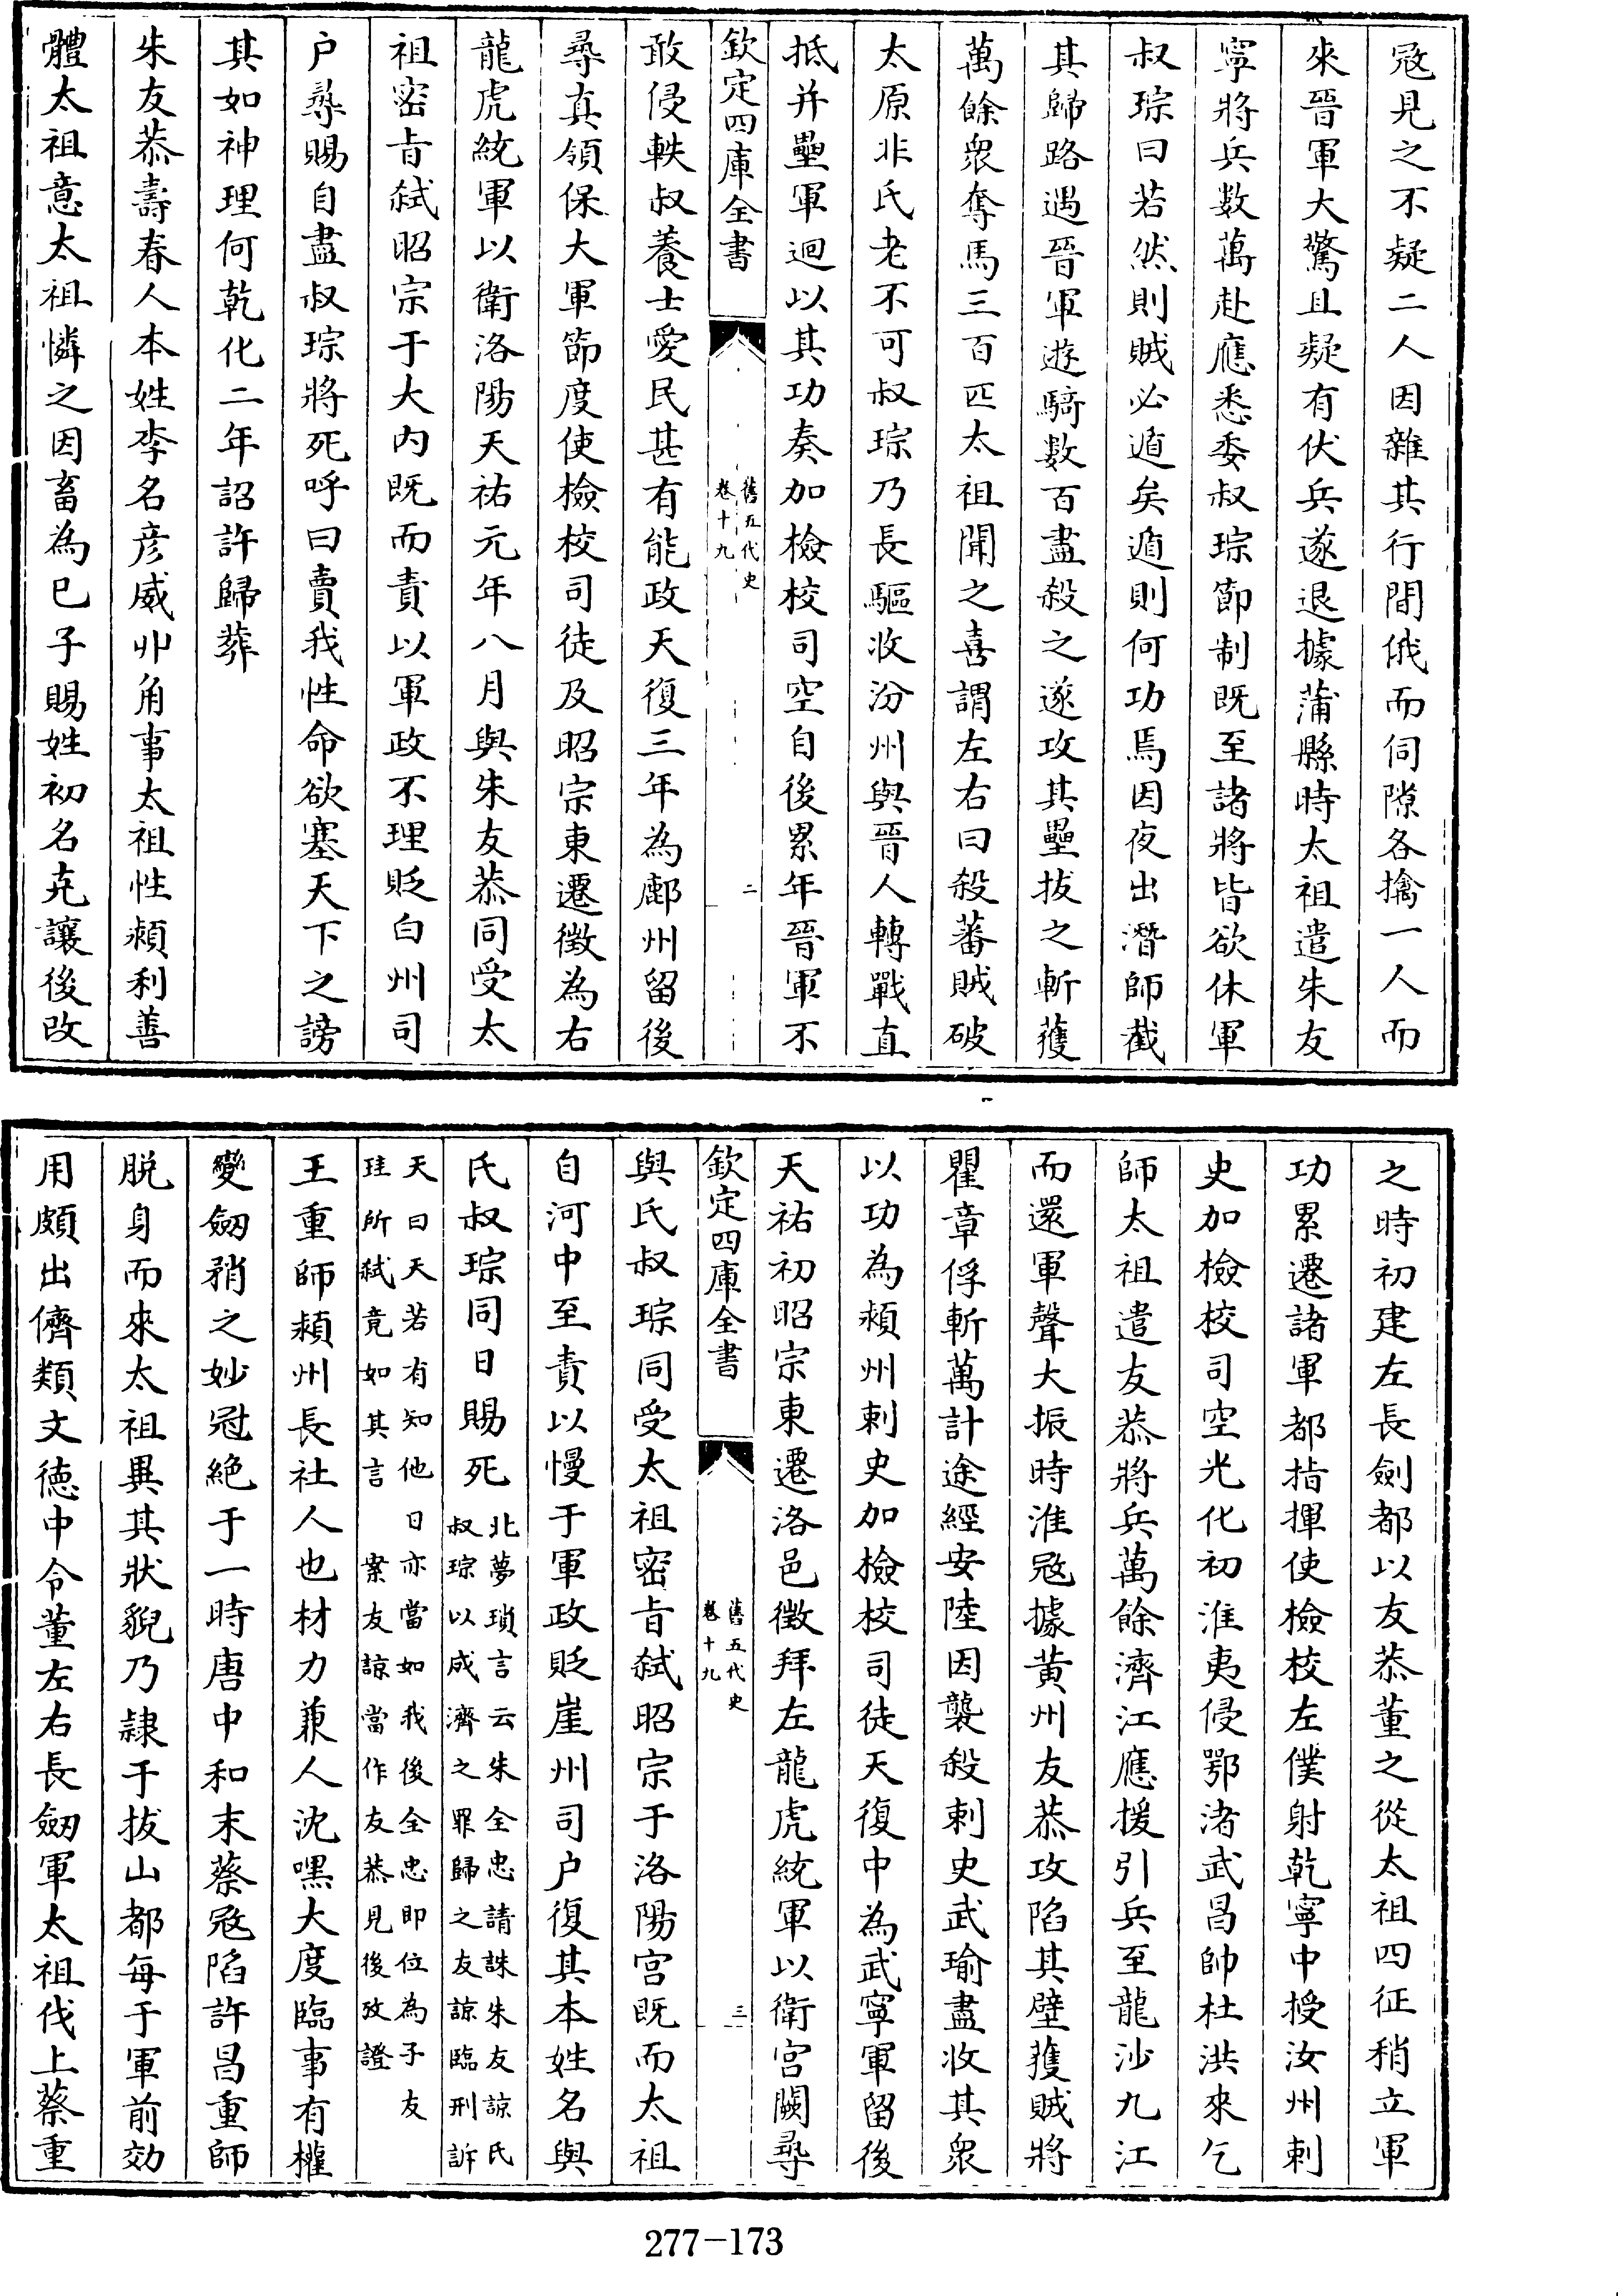 冦見之不疑二人因雜其行間俄而伺隙各擒一人而
來晉軍大驚且疑有伏兵遂退據蒲縣時太祖遣朱友
寧將兵數萬赴應悉委叔琮節制既至諸將皆欲休軍
叔琮曰若然則賊必遁矣遁則何功焉因夜出潛師截
其歸路遇晉軍遊騎數百盡殺之遂攻其壘拔之斬獲
萬餘衆奪馬三百匹太祖聞之喜謂左右曰殺蕃賊破
太原非氏老不可叔琮乃長驅收汾州與晉人轉戰直
抵并壘軍迴以其功奏加檢校司空自後累年晉軍不
欽定四庫全書
舊五代史
卷十九
二
敢侵軼叔養士愛民甚有能政天復三年為鄜州留後
尋真領保大軍節度使檢校司徒及昭宗東遷徵為右
龍虎統軍以衛洛陽天祐元年八月與朱友恭同受太
祖密旨弑昭宗于大内既而責以軍政不理貶白州司
户尋賜自盡叔琮將死呼曰賣我性命欲塞天下之謗
其如神理何乾化二年詔許歸葬
朱友恭壽春人本姓李名彦威丱角事太祖性潁利善
體太祖意太祖憐之因畜為已子賜姓初名克讓後改
之時初建左長劍都以友恭董之從太祖四征稍立軍
功累遷諸軍都指揮使檢校左僕射乾寧中授汝州刺
史加檢校司空光化初淮夷侵鄂渚武昌帥杜洪來乞
師太祖遣友恭將兵萬餘濟江應援引兵至龍沙九江
而還軍聲大振時淮冦據黄州友恭攻陷其壁獲賊將
瞿章俘斬萬計途經安陸因襲殺刺史武瑜盡收其衆
以功為潁州刺史加檢校司徒天復中為武寧軍留後
天祐初昭宗東遷洛邑徵拜左龍虎統軍以衛宫闕尋
欽定四庫全書
舊五代史
卷十九
三
與氏叔琮同受太祖密旨弑昭宗于洛陽宫既而太祖
自河中至責以慢于軍政貶崖州司户復其本姓名與
氏叔琮同日賜死北夢瑣言云朱全忠請誅朱友諒氏
叔琮以成濟之罪歸之友諒臨刑訴
天曰天若有知他日亦當如我後全忠即位為子友
珪所弑竟如其言 案友諒當作友恭見後攷證
王重師潁州長社人也材力兼人沈嘿大度臨事有權
變劒矟之妙冠絶于一時唐中和末蔡冦陷許昌重師
脱身而來太祖異其狀貌乃隷于拔山都每于軍前効
用頗出儕類文德中令董左右長劒軍太祖伐上蔡重
277-173